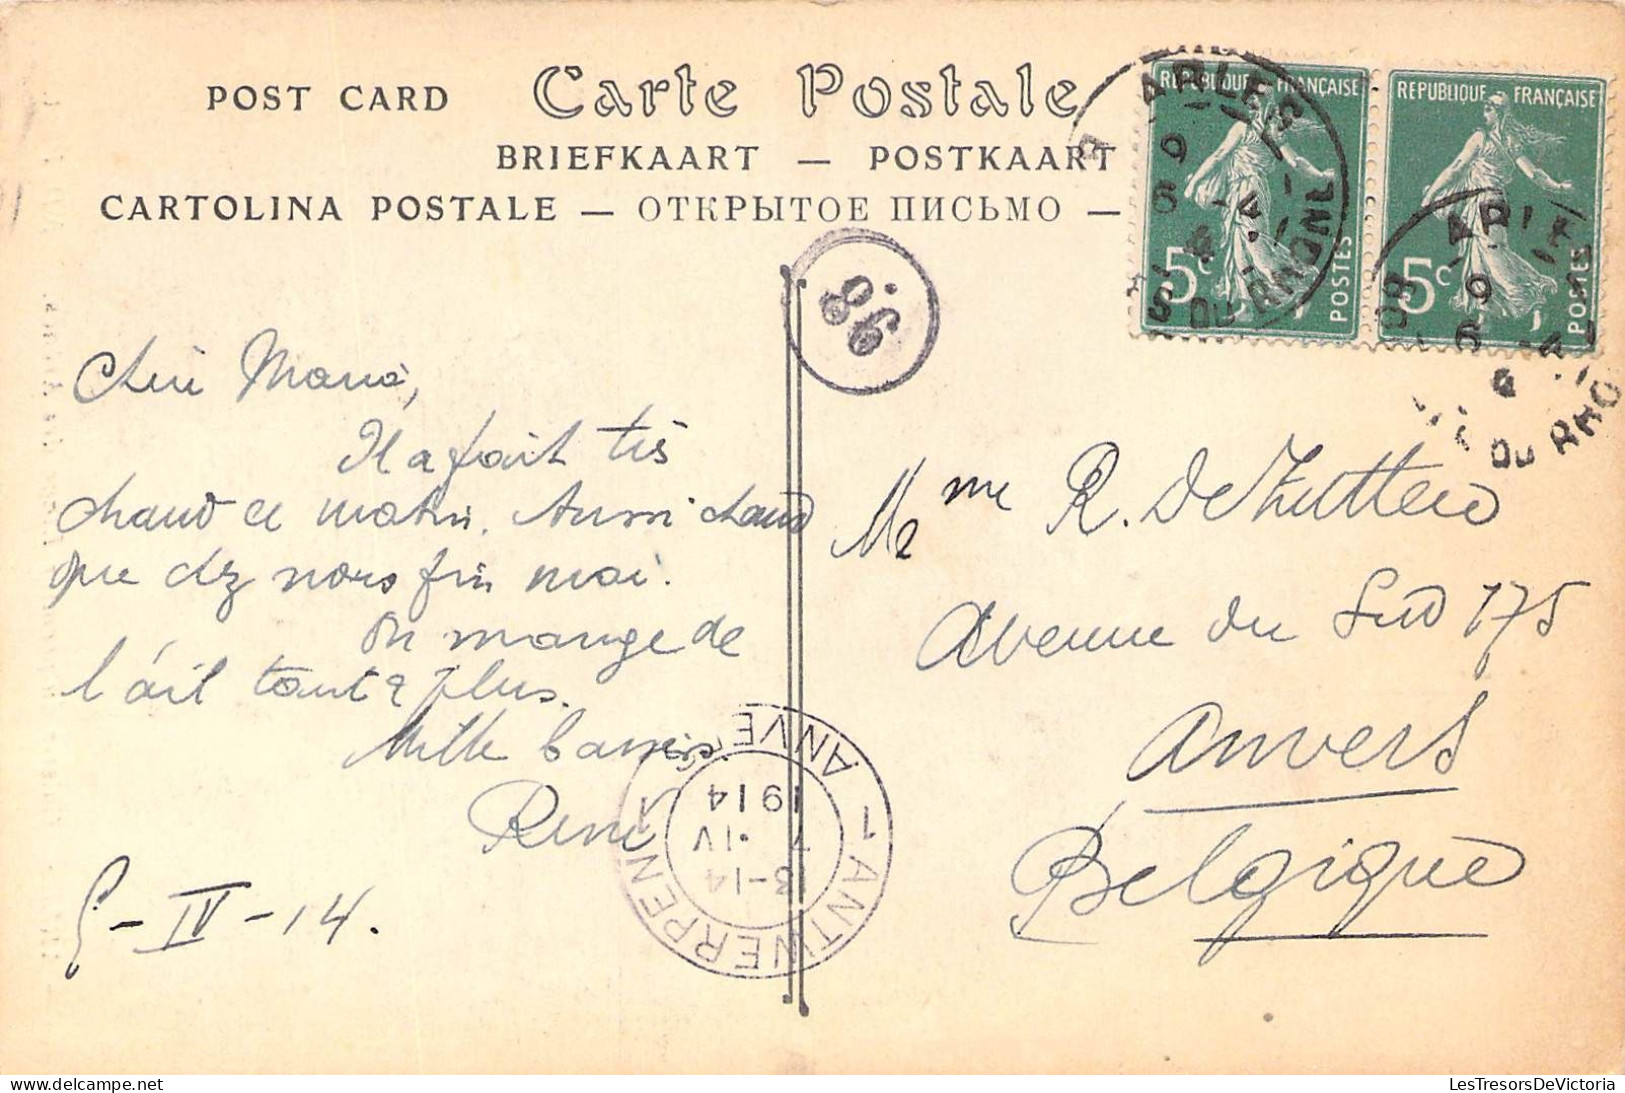 POST CARD Carte Postale
BRIEFKAART — POSTKAART
CARTOLINA POSTALE — ОТКРЫТОЕ ПИСЬМО —
REPUBLIQUE FRANÇAISE
5c POSTES
REPUBLIQUE FRANÇAISE
5c POSTES
ARLES
DU RHONE
ARLE
DU RHO
98
Il a fait très
chaud ce matin. Aussi chaud
que chez nous fin mai.
On mange de
l'ail tant & plus.
Mille baisers
René
5-IV-14.
Mme R. De
Avenue du Sud 175
Anvers
Belgique
1 ANTWERPEN 1 ANVERS
13-14
7.IV
1914
LesTresorsDeVictoria